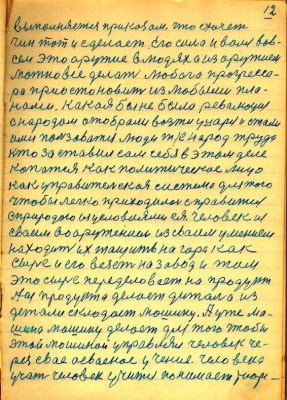 12
выполняется приказам. что скажет
чин тот и сделает. Его сила и вам вов-
сем Это оружие в людях а из оружием
можно все делат любого прогресса-
ра приостоновить из любыми пла-
нами. Какая бы не была революция
с народом отобрали возти и стали
ими ползоватся люди т/е народ труда
кто заставил сам себя в этом деле
копатся как политическое лицо
как управителская система для того
чтобы легко приходилос справится
с природою и условиями ея человек и
своим вооружением из своим умением
находит их тащить на гара как
сырс и его везет на завод и там
это сырс переделовает на продукт
А из продукта делает детала из
детали складает машину. А уже ма-
шина машину делает для того чтобы
этой машиной управлял человек че-
рез свое освоеное учение. человека
учат человек учится понимает